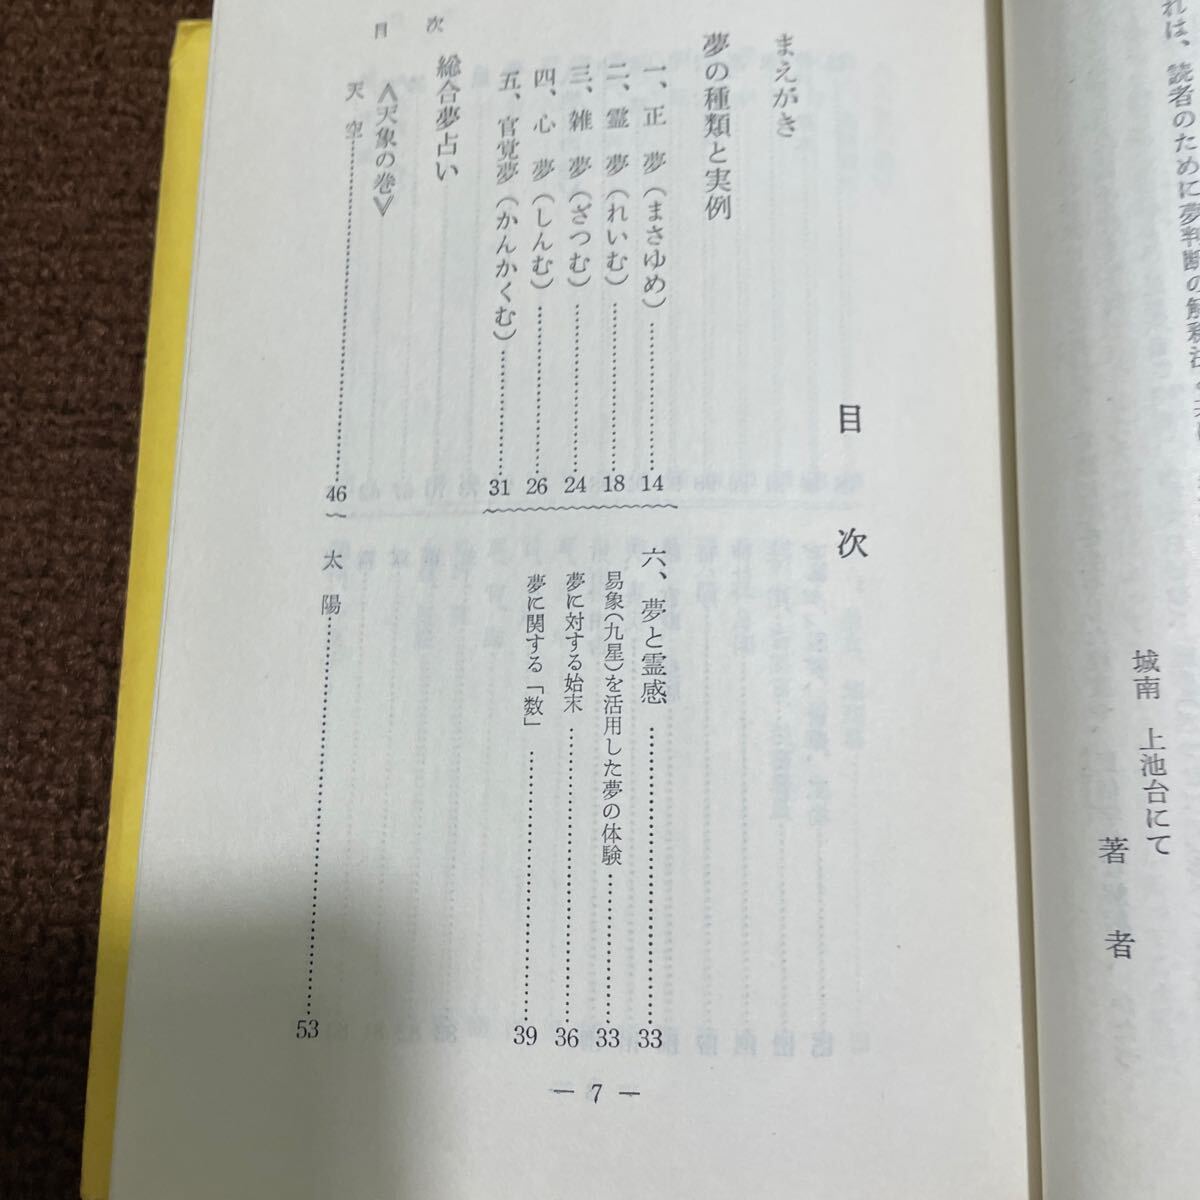 れは、読者のために夢判断の解釈法
城南　上池台にて
著　者
目　次
まえがき
夢の種類と実例
一、正　夢（まさゆめ）……………14
二、霊　夢（れいむ）……………18
三、雑　夢（ざつむ）……………24
四、心　夢（しんむ）……………26
五、官覚夢（かんかくむ）……………31
六、夢と霊感……………33
易象（九星）を活用した夢の体験……………33
夢に対する始末……………36
夢に関する「数」……………39
総合夢占い
≪天象の巻≫
天　空……………46
太　陽……………53
目　次
— 7 —